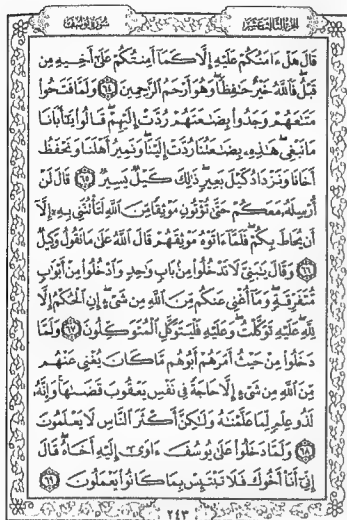 الجزء الثالث عشر سورة يوسف
قَالَ هَلْ ءَامَنُكُمْ عَلَيْهِ إِلَّا كَمَآ أَمِنتُكُمْ عَلَىٰٓ أَخِيهِ مِن
قَبْلُ فَٱللَّهُ خَيْرٌ حَـٰفِظًا وَهُوَ أَرْحَمُ ٱلرَّٰحِمِينَ ٦٤ وَلَمَّا فَتَحُوا۟
مَتَـٰعَهُمْ وَجَدُوا۟ بِضَـٰعَتَهُمْ رُدَّتْ إِلَيْهِمْ قَالُوا۟ يَـٰٓأَبَانَا
مَا نَبْغِى هَـٰذِهِۦ بِضَـٰعَتُنَا رُدَّتْ إِلَيْنَا وَنَمِيرُ أَهْلَنَا وَنَحْفَظُ
أَخَانَا وَنَزْدَادُ كَيْلَ بَعِيرٍ ذَٰلِكَ كَيْلٌ يَسِيرٌ ٦٥ قَالَ لَنْ
أُرْسِلَهُۥ مَعَكُمْ حَتَّىٰ تُؤْتُونِ مَوْثِقًا مِّنَ ٱللَّهِ لَتَأْتُنَّنِى بِهِۦٓ إِلَّآ
أَن يُحَاطَ بِكُمْ فَلَمَّآ ءَاتَوْهُ مَوْثِقَهُمْ قَالَ ٱللَّهُ عَلَىٰ مَا نَقُولُ وَكِيلٌ
٦٦ وَقَالَ يَـٰبَنِىَّ لَا تَدْخُلُوا۟ مِنۢ بَابٍ وَٰحِدٍ وَٱدْخُلُوا۟ مِنْ أَبْوَٰبٍ
مُّتَفَرِّقَةٍ وَمَآ أُغْنِى عَنكُم مِّنَ ٱللَّهِ مِن شَىْءٍ إِنِ ٱلْحُكْمُ إِلَّا
لِلَّهِ عَلَيْهِ تَوَكَّلْتُ وَعَلَيْهِ فَلْيَتَوَكَّلِ ٱلْمُتَوَكِّلُونَ ٦٧ وَلَمَّا
دَخَلُوا۟ مِنْ حَيْثُ أَمَرَهُمْ أَبُوهُم مَّا كَانَ يُغْنِى عَنْهُم
مِّنَ ٱللَّهِ مِن شَىْءٍ إِلَّا حَاجَةً فِى نَفْسِ يَعْقُوبَ قَضَىٰهَا وَإِنَّهُۥ
لَذُو عِلْمٍ لِّمَا عَلَّمْنَـٰهُ وَلَـٰكِنَّ أَكْثَرَ ٱلنَّاسِ لَا يَعْلَمُونَ
٦٨ وَلَمَّا دَخَلُوا۟ عَلَىٰ يُوسُفَ ءَاوَىٰٓ إِلَيْهِ أَخَاهُ قَالَ
إِنِّىٓ أَنَا۠ أَخُوكَ فَلَا تَبْتَئِسْ بِمَا كَانُوا۟ يَعْمَلُونَ ٦٩
٢٤٣